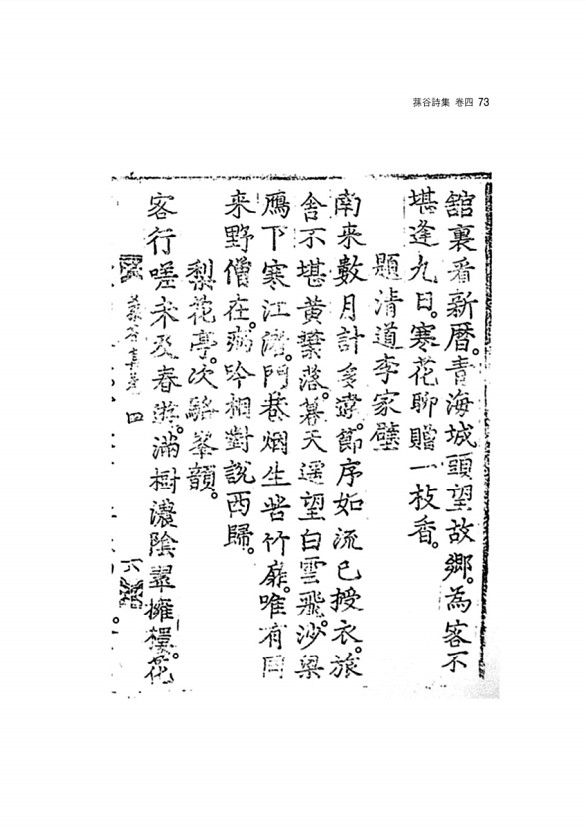 蓀谷詩集 卷四 73
舘裏看新曆。青海城頭望故鄉。為客不
堪逢九日。寒花聊贈一枝香。
題清道李家壁
南来數月計多違。節序如流已授衣。旅
舍不堪黃葉落。暮天遥望白雲飛。沙梁
鴈下寒江渚。門巷烟生苦竹扉。唯有
来野僧在。病吟相對說西歸。
梨花亭。次駱峯韻。
客行嗟未及春遊。滿樹濃陰翠擁樓。花
蓀谷集卷四
六